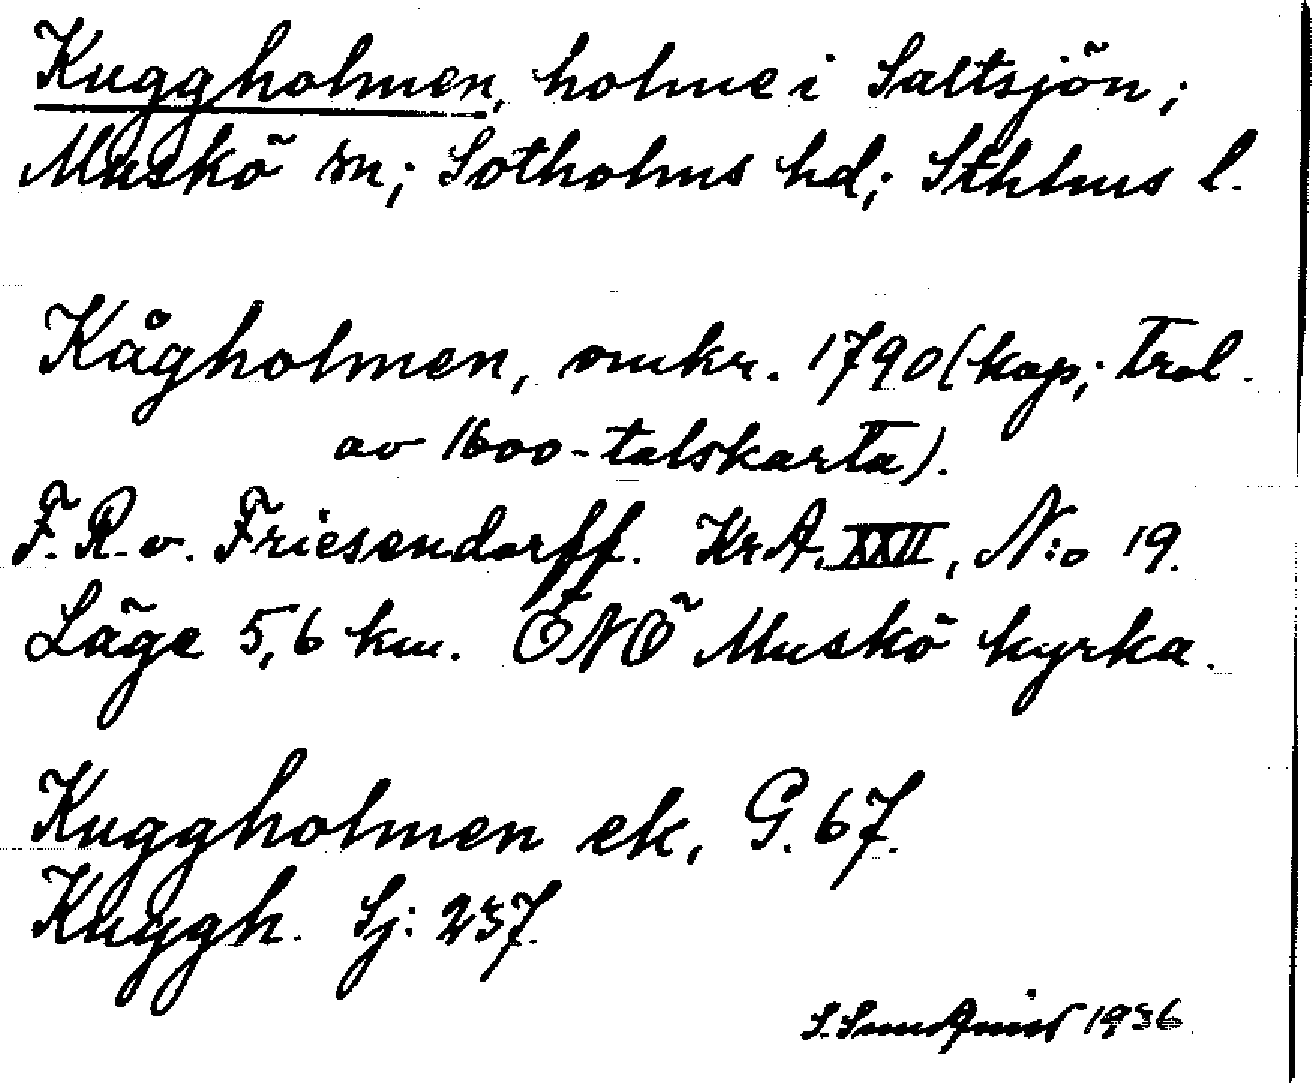 Kuggholmen, holme i Saltsjön;
Muskö sn; Sotholms hd; Sthlms l.
Kågholmen, omkr. 1790 (kop; trol.
av 1600-talskarta).
F. R. v. Friesendorff. KrA. XXII, N:o 19.
Läge 5,6 km. ÖNÖ Muskö kyrka.
Kuggholmen ek, G. 67.
Kuggh. Sj: 237.
S. Sundqvist 1936